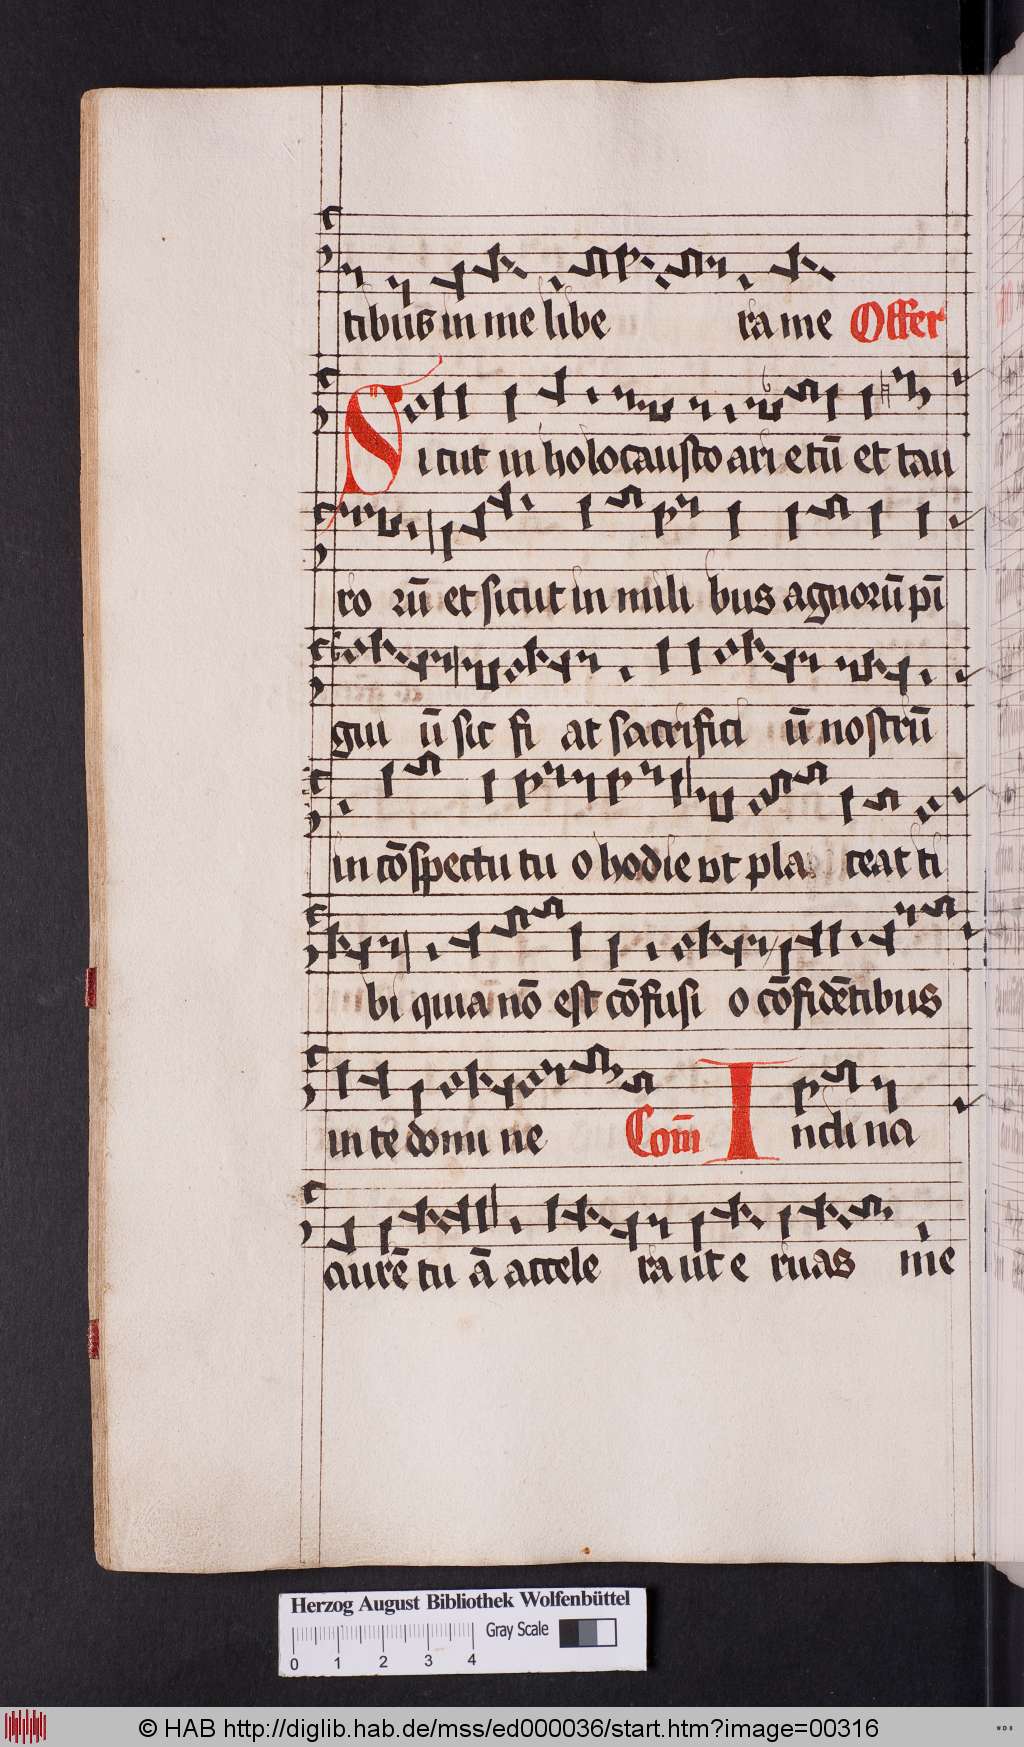 tibus in me libe ra me Offer
Sicut in holocausto arietū et tau
ro rū et sicut in mili bus agnorū pī
gui ū sic fi at sacrifici ū nostrū
in cōspectu tu o hodie vt pla ceat ti
bi quia nō est cōfusi o cōfidētibus
in te domi ne Com̄ Inclina
aurē tu ā accele ra ut e ruas me
Herzog August Bibliothek Wolfenbüttel
Gray Scale
0 1 2 3 4
© HAB http://diglib.hab.de/mss/ed000036/start.htm?image=00316